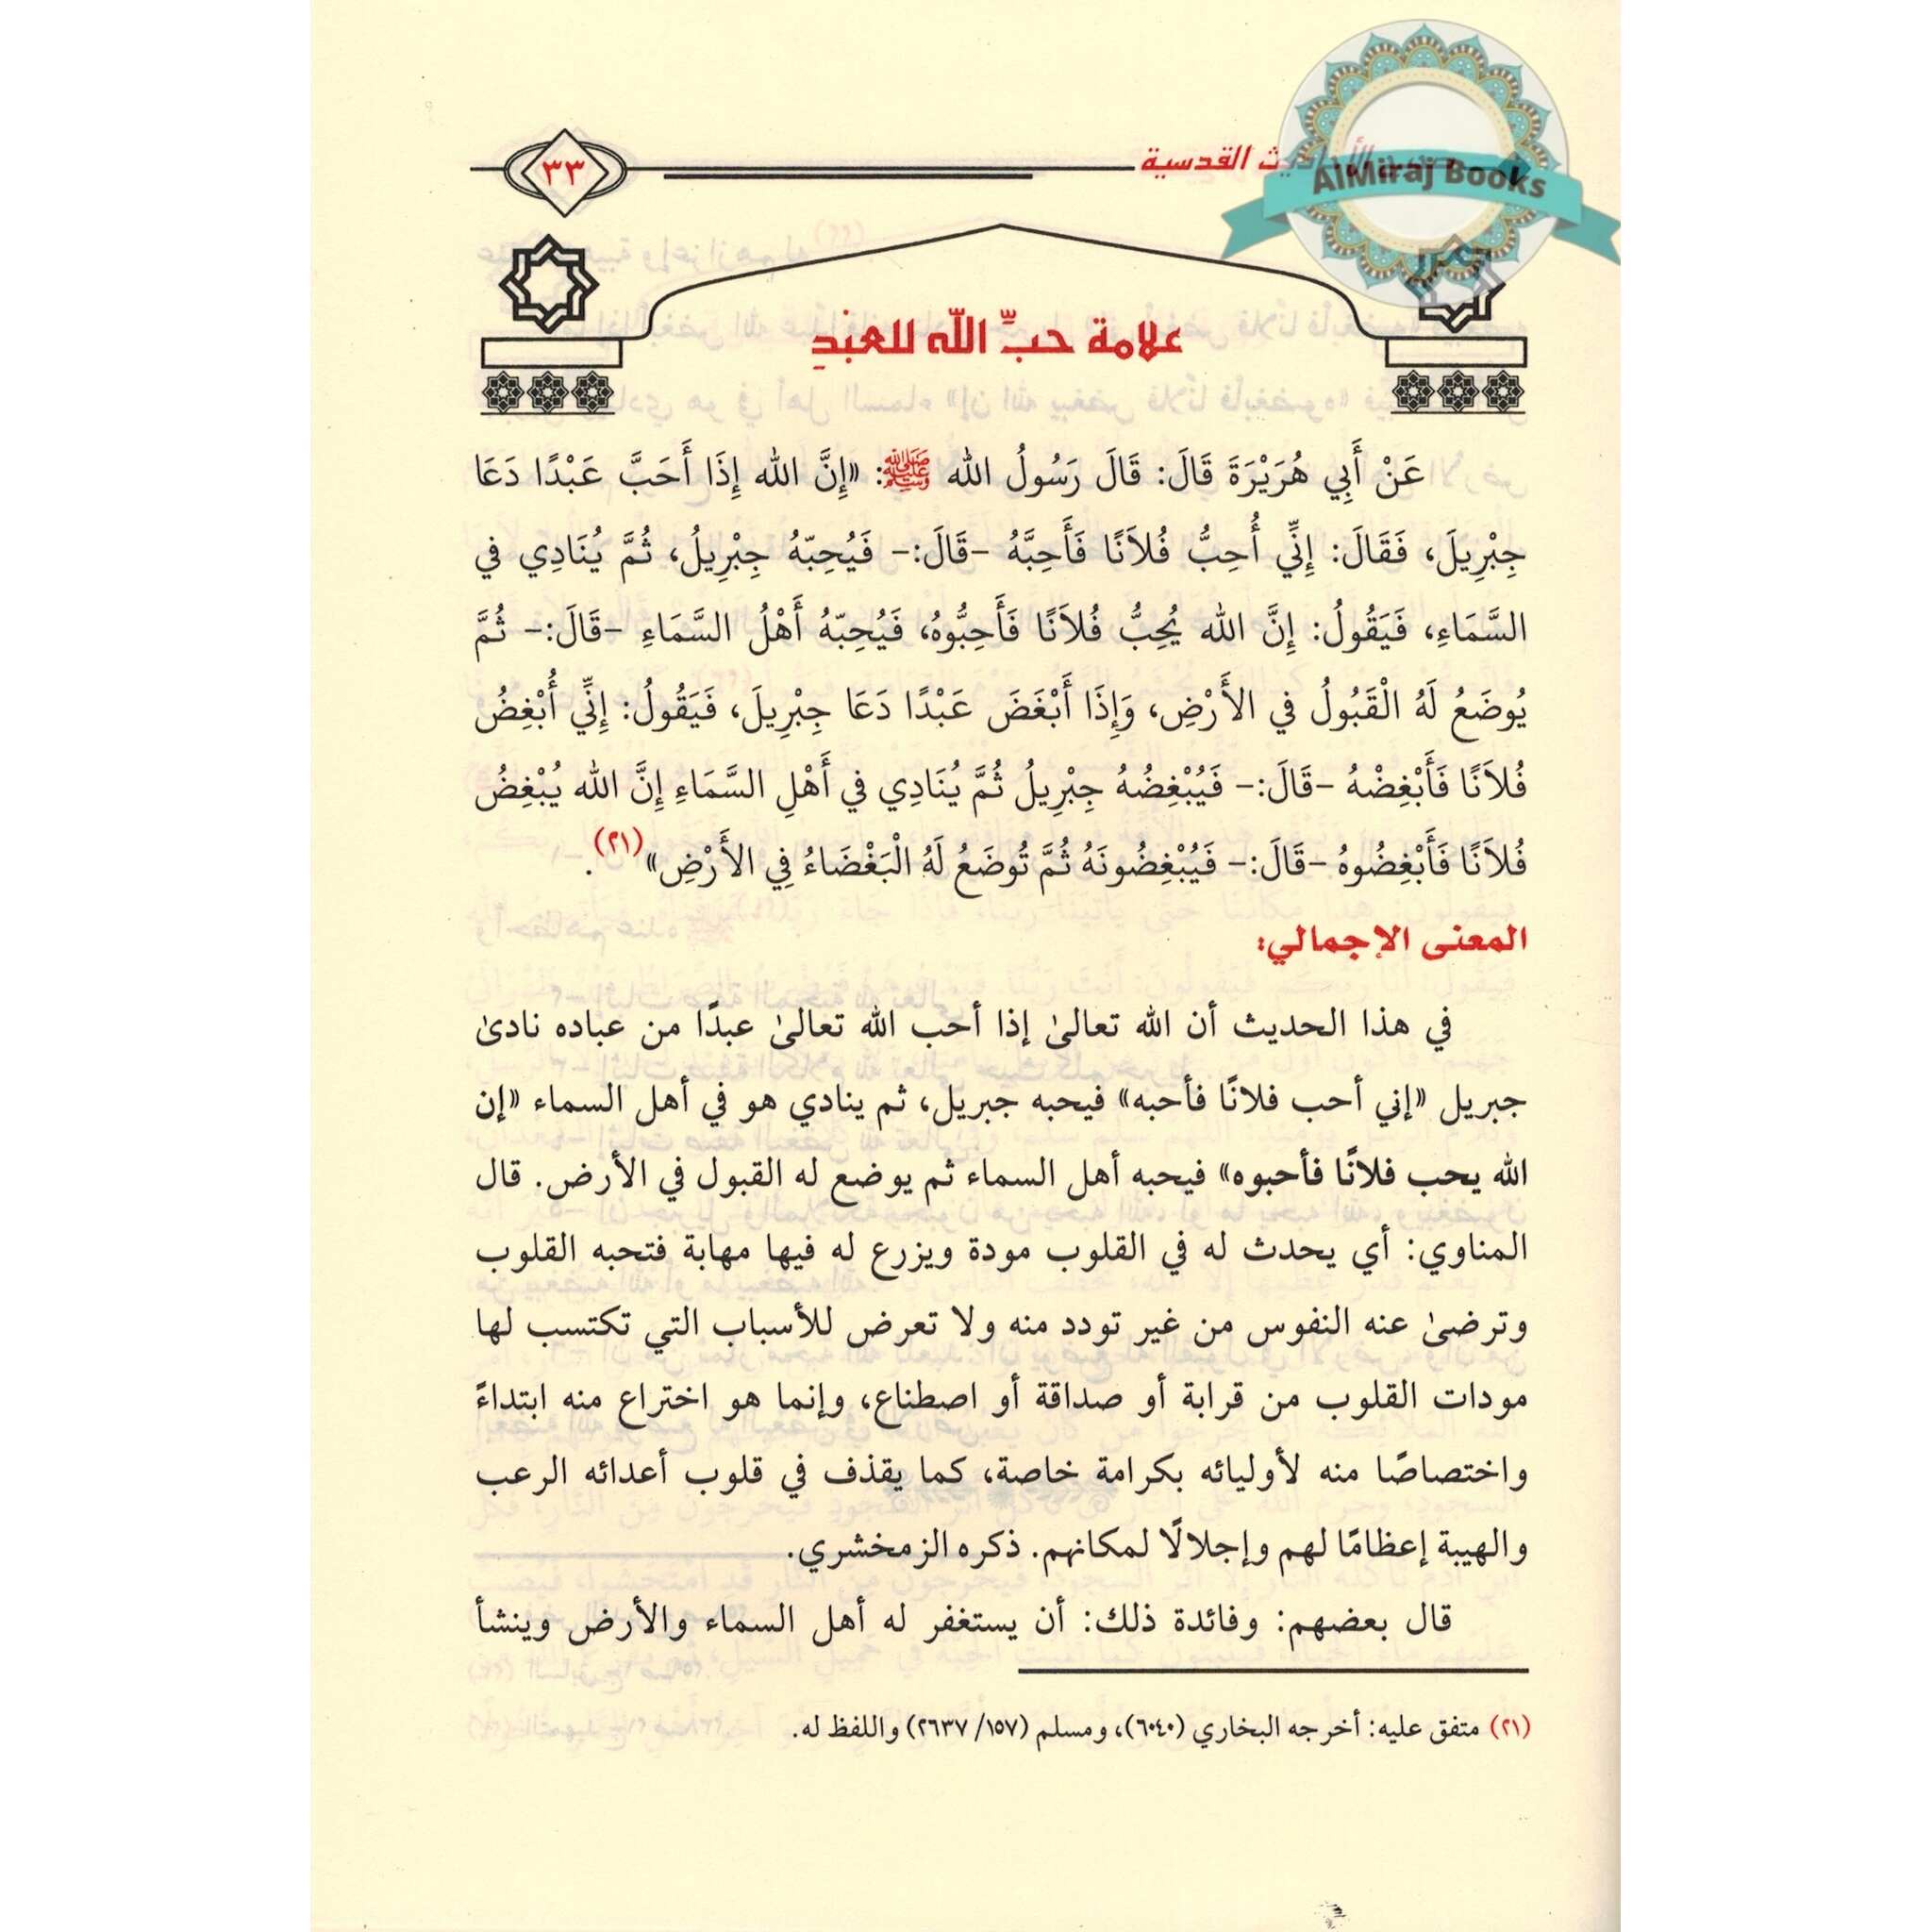 القدسية
AlMiraj Books
٣٣
علامة حبِّ اللّه للعبْدِ
عَنْ أَبِي هُرَيْرَةَ قَالَ: قَالَ رَسُولُ الله ﷺ: «إِنَّ الله إِذَا أَحَبَّ عَبْدًا دَعَا
جِبْرِيلَ، فَقَالَ: إِنِّي أُحِبُّ فُلاَنًا فَأَحِبَّهُ -قَالَ:- فَيُحِبّهُ جِبْرِيلُ، ثُمَّ يُنَادِي في
السَّمَاءِ، فَيَقُولُ: إِنَّ الله يُحِبُّ فُلاَنًا فَأَحِبُّوهُ، فَيُحِبّهُ أَهْلُ السَّمَاءِ -قَالَ:- ثُمَّ
يُوضَعُ لَهُ الْقَبُولُ في الأَرْضِ، وَإِذَا أَبْغَضَ عَبْدًا دَعَا جِبْرِيلَ، فَيَقُولُ: إِنِّي أُبْغِضُ
فُلاَنًا فَأَبْغِضْهُ -قَالَ:- فَيُبْغِضُهُ جِبْرِيلُ ثُمَّ يُنَادِي في أَهْلِ السَّمَاءِ إِنَّ الله يُبْغِضُ
فُلاَنًا فَأَبْغِضُوهُ -قَالَ:- فَيُبْغِضُونَهُ ثُمَّ تُوضَعُ لَهُ الْبَغْضَاءُ فِي الأَرْضِ»(٢١).
المعنى الإجمالي:
في هذا الحديث أن الله تعالىٰ إذا أحب الله تعالىٰ عبدًا من عباده نادىٰ
جبريل «إني أحب فلانًا فأحبه» فيحبه جبريل، ثم ينادي هو في أهل السماء «إن
الله يحب فلانًا فأحبوه» فيحبه أهل السماء ثم يوضع له القبول في الأرض. قال
المناوي: أي يحدث له في القلوب مودة ويزرع له فيها مهابة فتحبه القلوب
وترضىٰ عنه النفوس من غير تودد منه ولا تعرض للأسباب التي تكتسب لها
مودات القلوب من قرابة أو صداقة أو اصطناع، وإنما هو اختراع منه ابتداءً
واختصاصًا منه لأوليائه بكرامة خاصة، كما يقذف في قلوب أعدائه الرعب
والهيبة إعظامًا لهم وإجلالًا لمكانهم. ذكره الزمخشري.
قال بعضهم: وفائدة ذلك: أن يستغفر له أهل السماء والأرض وينشأ
(٢١) متفق عليه: أخرجه البخاري (٦٠٤٠)، ومسلم (١٥٧/ ٢٦٣٧) واللفظ له.